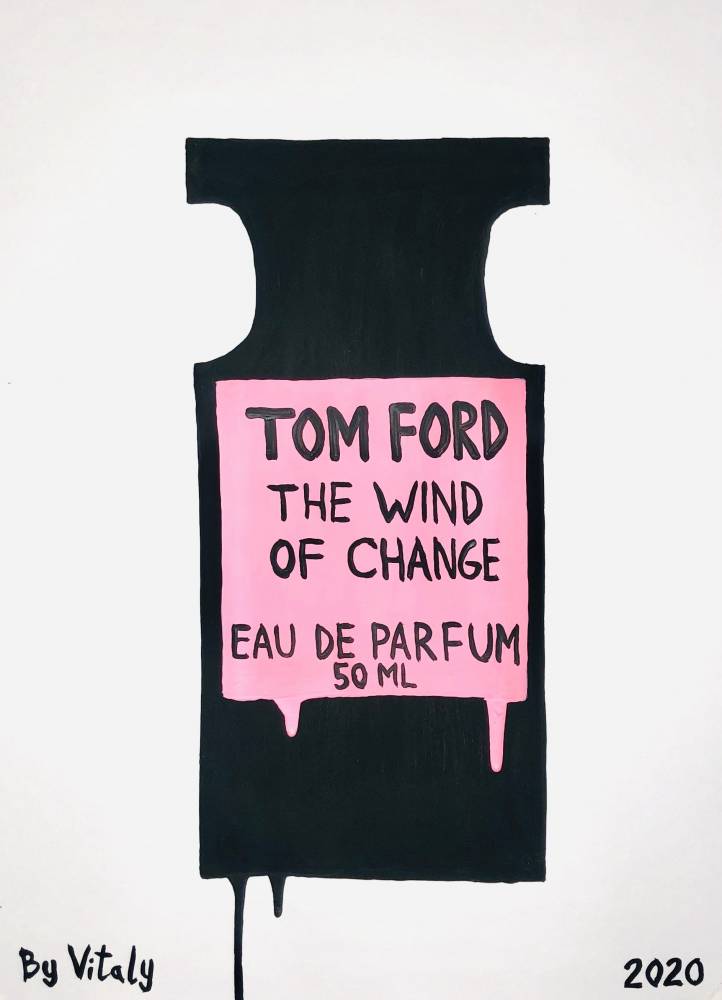 TOM FORD
THE WIND
OF CHANGE
EAU DE PARFUM
50 ML
By Vitaly
2020